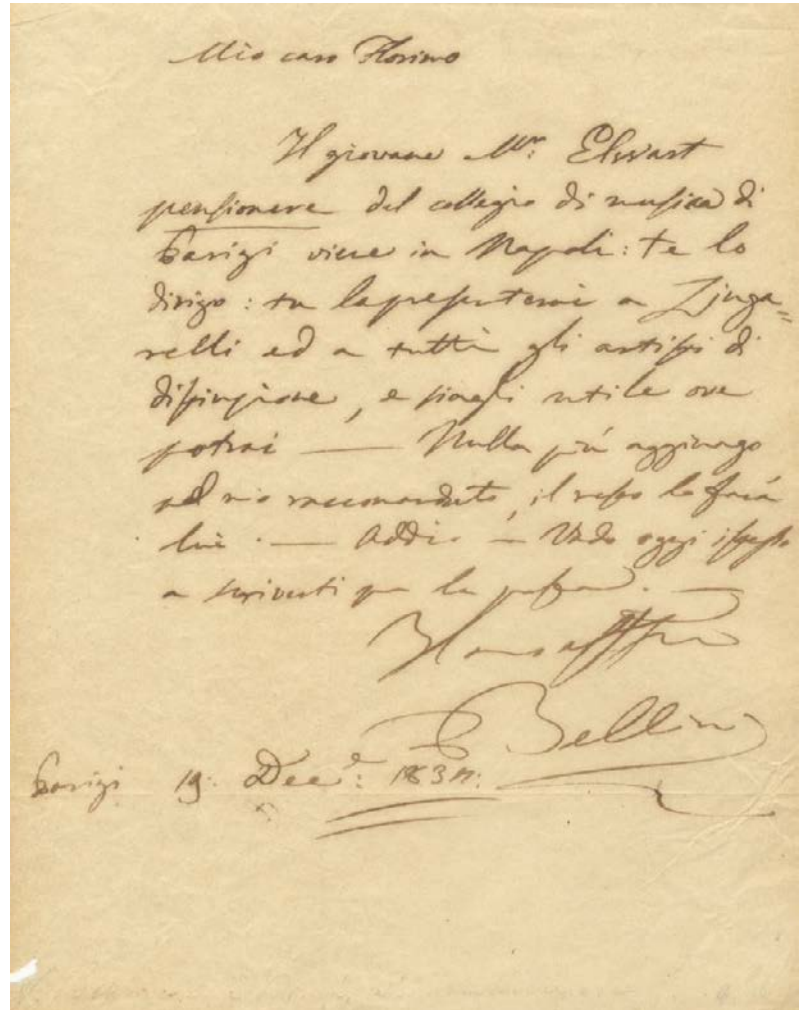 Mio caro Florimo
Il giovane Mr: Elwart
pensionere del collegio di musica di
Parigi viene in Napoli: te lo
dirigo: tu lo presenterai a Zinga=
relli ed a tutti gli artisti di
distinzione, e siagli utile ove
potrai — Nulla più aggiungo
nel mio raccomandato, il resto lo farà
lui. — Addio — Vado oggi stesso
a scriverti per la posta. —
Il tuo aff.mo
Bellini
Parigi 19: Dece: 1834: